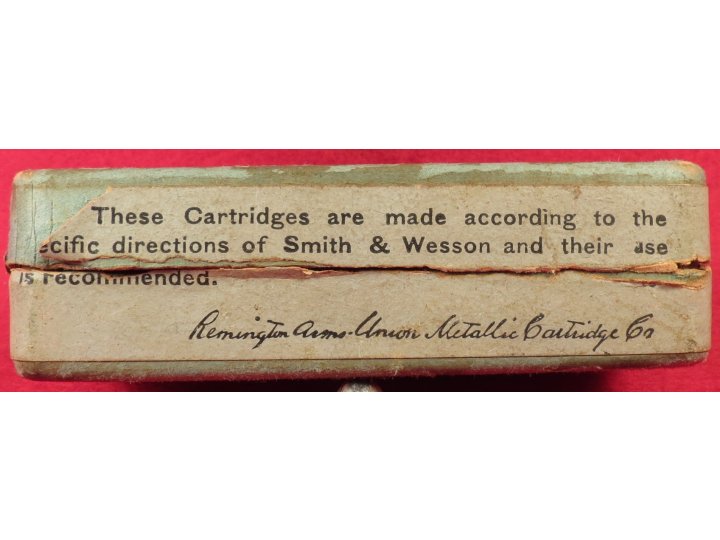 These Cartridges are made according to the
ecific directions of Smith & Wesson and their use
is recommended.
Remington Arms-Union Metallic Cartridge Co